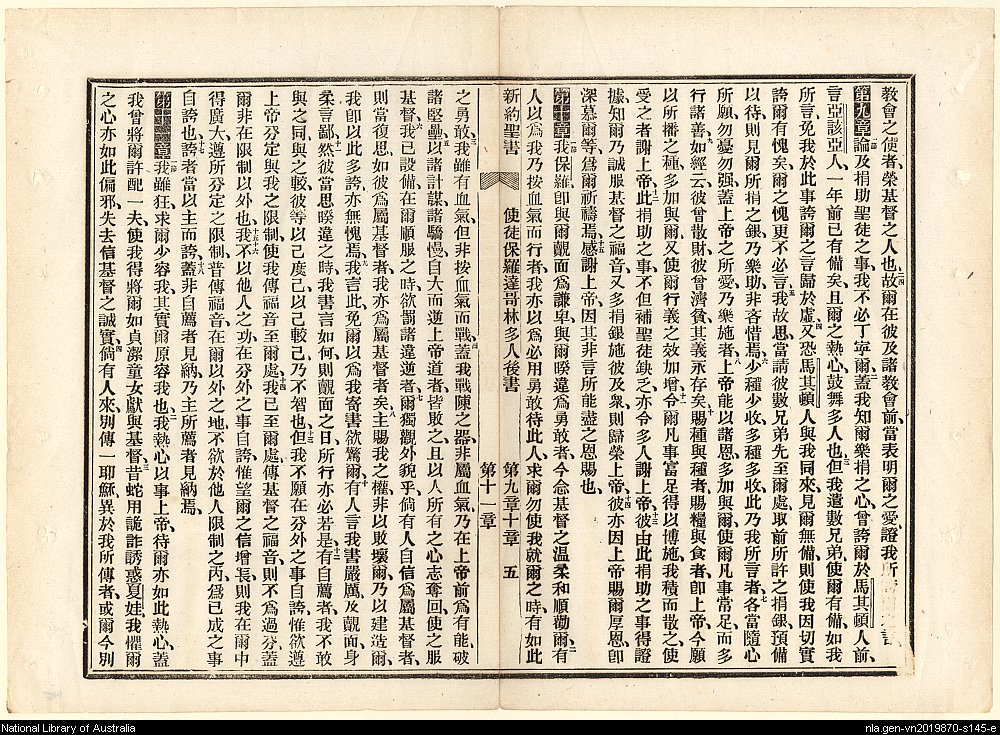 教會之使者、榮基督之人也、二四故爾在彼及諸教會前、當表明爾之愛、證我所
第九章一節論及捐助聖徒之事、我不必丁寧爾、二蓋我知爾樂捐之心、曾誇爾於馬其頓人前、
言亞該亞人、一年前已有備矣、且爾之熱心、鼓舞多人也、三但我遣數兄弟、使爾有備、如我
所言、免我於此事誇爾之言、歸於虛、四又恐馬其頓人與我同來、見爾無備、則使我因切實
誇爾有愧矣、爾之愧更不必言、五我故思當請彼數兄弟、先至爾處、取前所許之捐銀預備
以待、則見爾所捐之銀、乃樂助、非吝惜焉、六少種少收、多種多收、此乃我所言者、七各當隨心
所願、勿憂勿强、蓋上帝之所愛、乃樂施者、八上帝能以諸恩多加與爾、使爾凡事常足、而多
行諸善、九如經云、彼曾散財、彼曾濟貧、其義永存矣、十賜種與種者、賜糧與食者、卽上帝、今願
以所播之種、多加與爾、又使爾行義之效加增、十一令爾凡事富足、得以博施、我積而散之、使
受之者、謝上帝、十二此捐助之事、不但補聖徒缺乏、亦令多人謝上帝、十三彼由此捐助之事得證
據、知爾乃誠服基督之福音、又多捐銀施彼及衆、則歸榮上帝、十四彼亦因上帝賜爾厚恩、卽
深慕爾等、爲爾祈禱焉、十五感謝上帝、因其非言所能盡之恩賜也、
第十章一節我保羅、卽與爾覿面爲謙卑、與爾暌違爲勇敢者、今念基督之溫柔和順勸爾、二有
人以爲我乃按血氣而行者、我亦以爲必用勇敢待此人、求爾勿使我就爾之時、有如此
新約聖書 使徒保羅達哥林多人後書 第九章十章 第十一章 五
之勇敢、三我雖有血氣、但非按血氣而戰、四蓋我戰陳之器、非屬血氣、乃在上帝前爲有能、破
諸堅壘、五以諸計謀、諸驕慢自大而逆上帝道者、皆敗之、且以人所有之心志奪回、使之服
基督、六我已設備、在爾順服之時、欲罰諸違逆者、七爾獨觀外貌乎、倘有人自信爲屬基督者、
則當復思、如彼爲屬基督者、我亦爲屬基督者矣、八主賜我之權、非以敗壞爾、乃以建造爾、
我卽以此多誇、亦無愧焉、九我言此、免爾以爲我寄書欲驚爾、十有人言、我書嚴厲、及覿面、身
柔言鄙、十一然彼當思、暌違之時、我書言如何、則覿面之日、所行亦必若是、十二有自薦者、我不敢
與之同、與之較、彼等以己度己、以己較己、乃不智也、十三但我不願在分外之事自誇、惟欲遵
上帝分定與我之限制、使我傳福音至爾處、十四我已至爾處傳基督之福音、則不爲過分、蓋
爾非在限制以外也、十五十六我不以他人之功、在分外之事自誇、惟望爾之信增長、則我在爾中
得廣大、遵所分定之限制、普傳福音在爾以外之地、不欲於他人限制之內、爲已成之事
自誇也、十七誇者當以主而誇、十八蓋非自薦者見納、乃主所薦者見納焉、
第十一章一節我雖狂、求爾少容我、其實爾原容我也、二我執心以事上帝、待爾亦如此熱心、蓋
我曾將爾許配一夫、使我得將爾如貞潔童女獻與基督、三昔蛇用詭詐誘惑夏娃、我懼爾
之心亦如此偏邪、失去信基督之誠實、四倘有人來、別傳一耶穌、異於我所傳者、或爾今別
National Library of Australia
nla.gen-vn2019870-s145-e